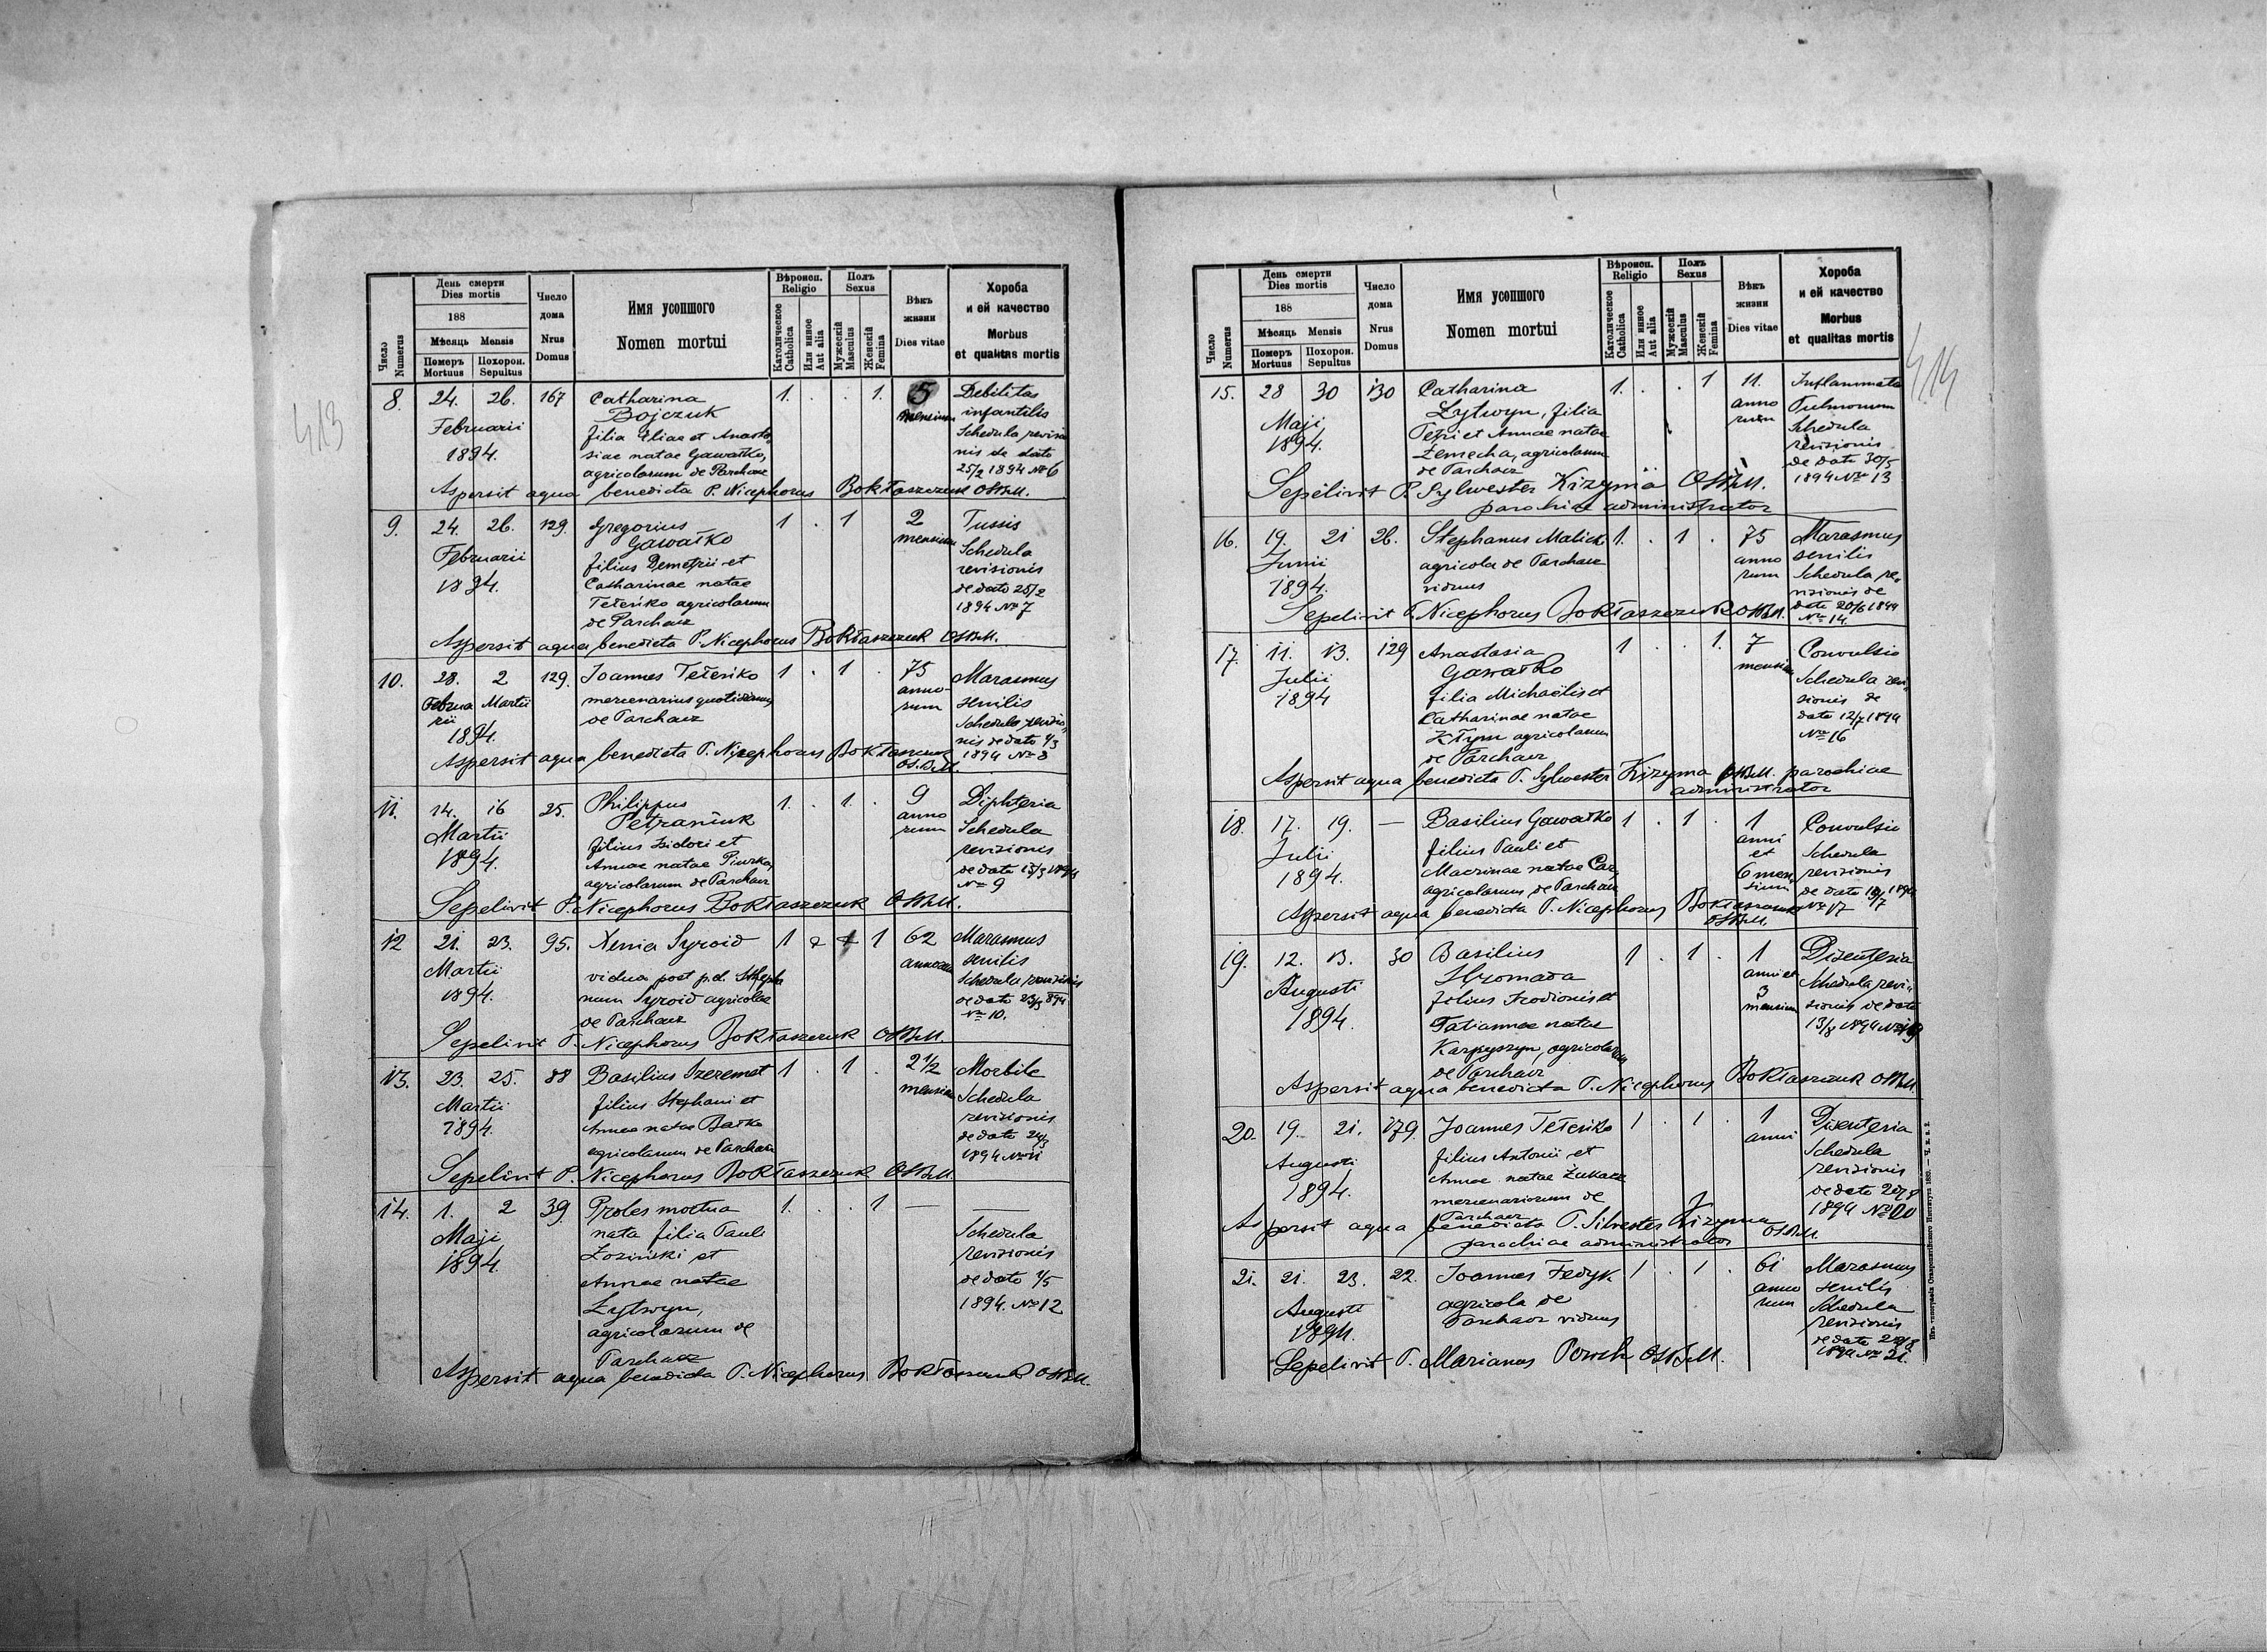 413
День смерти
Dies mortis
188
Мѣсяць Mensis
Число
Numerus
Померъ
Mortuus
Похорон.
Sepultus
Число
дома
Nrus
Domus
Имя усопшого
Nomen mortui
Вѣроисп.
Religio
Католическое
Catholica
Или инное
Aut alia
Полъ
Sexus
Мужескій
Masculus
Женскій
Femina
Вѣкъ
жизни
Dies vitae
Хороба
и ей качество
Morbus
et qualitas mortis
8. 24. 26. 167 Catharina 1. . . 1. 5 Debilitas
Bojczuk mensium infantilis
Februarii filia Eliae et Anasta- Schedula revisio
1894. siae natae Gawałko, nis de dato
agricolarum de Parchacz 25/2 1894 No 6
Aspersit aqua benedicta P. Nicephorus Bokłaszczuk OSBM.
9. 24. 26. 129. Gregorius 1 . 1 2 Tussis
Gawałko mensium
Februarii filius Demetrii et Schedula
1894. Catharinae natae revisionis
Teteńko agricolarum de dato 25/2
de Parchacz 1894 No 7
Aspersit aqua benedicta P. Nicephorus Bokłaszczuk OSBM.
10. 28. 2 129. Joannes Teteńko 1 . 1 . 75 Marasmus
Februa Martii mercenarius quotidianus anno- senilis
rii de Parchacz rum Schedula revisio
1894. nis de dato 1/3
1894 No 8
Aspersit aqua benedicta P. Nicephorus Bokłaszczuk
OSBM.
11. 14. 16 25. Philippus 1. . 1. . 9 Diphteria
Petraniuk anno
Martii filius Isidori et rum Schedula
1894. Annae natae revisionis
agricolarum de Parchacz de dato 15/3 1894
No 9
Sepelivit P. Nicephorus Bokłaszczuk OSBM.
12 21. 23. 95. Xenia Syroid 1 1 62 Marasmus
Martii annorum senilis
1894. vidua post p.d. Stepha Schedula revisionis
num Syroid agricolae de dato 23/3 894
de Parchacz No 10.
Sepelivit P. Nicephorus Bokłaszczuk OSBM.
13. 23. 25. 88 Basilius Szeremet 1 . 1 . 2 1/2 Morbile
Martii filius Stephani et mensium Schedula
1894. Annae natae Bałko revisionis
agricolarum de Parchacz de dato 24/3
1894 No 11
Sepelivit P. Nicephorus Bokłaszczuk OSBM.
14. 1. 2 39. Proles mortua 1. . . 1 — —
Maji nata filia Pauli Schedula
1894. Łoziński et revisionis
Annae natae de dato 1/5
Łytwyn, 1894. No 12
agricolarum de
Parchacz
Aspersit aqua benedicta P. Nicephorus Bokłaszczuk OSBM.
414
День смерти
Dies mortis
188
Мѣсяць Mensis
Число
Numerus
Померъ
Mortuus
Похорон.
Sepultus
Число
дома
Nrus
Domus
Имя усопшого
Nomen mortui
Вѣроисп.
Religio
Католическое
Catholica
Или инное
Aut alia
Полъ
Sexus
Мужескій
Masculus
Женскій
Femina
Вѣкъ
жизни
Dies vitae
Хороба
и ей качество
Morbus
et qualitas mortis
15. 28 30 130 Catharina 1. . . 1 11. Inflammatio
Łytwyn, filia anno Pulmonum
Maji Petri et Annae natae rum Schedula
1894. Żemecha, agricolarum revisionis
de Parchacz de dato 30/5
1894 No 13
Sepelivit P. Sylwester Kizyma OSBM.
parochiae administrator
16. 19. 21 26. Stephanus Malich 1. . 1 . 75 Marasmus
Junii agricola de Parchacz anno senilis
1894. viduus rum Schedula re-
visionis de
dato 20/6 1894
No 14.
Sepelivit P. Nicephorus Bokłaszczuk OSBM.
17. 11. 13. 129 Anastasia 1 . 1. 7 Convulsio
Gawałko mensium
Julii filia Michaëlis et Schedula revi-
1894 Catharinae natae sionis de
Kłym agricolarum dato 12/7 1894
de Parchacz No 16
Aspersit aqua benedicta P. Sylwester Kizyma OSBM. parochiae
administrator
18. 17. 19. — Basilius Gawałko 1 . 1 . 1 Convulsio
Julii filius Pauli et anni Schedula
1894. Macrinae natae et revisionis
agricolarum de Parchacz 6 men- de dato 18/7 1894
sium No 17
Aspersit aqua benedicta P. Nicephorus Bokłaszczuk
OSBM.
19. 12. 13. 30 Basilius 1 . 1 . 1 Disenteria
Hromada anni et
Augusti filius Irodionis et 3 Schedula revi-
1894. Tatiannae natae mensium sionis de dato
Karpyszyn, agricolarum 13/8 1894 No 19
de Parchacz
Aspersit aqua benedicta P. Nicephorus Bokłaszczuk OSBM.
20. 19. 21. 179. Joannes Teteńko 1 . 1 . 1 Disenteria
filius Antonii et anni Schedula
Augusti Annae natae Żukacz revisionis
1894. mercenariorum de de dato 20/8
Parchacz 1894 No 20
Aspersit aqua benedicta P. Silvester Kizyma OSBM.
parochiae administrator
21. 21. 23. 22. Joannes Fedyk 1 . 1 . 61 Marasmus
Augusti agricola de anno senilis
1894. Parchacz viduus rum Schedula
revisionis
de dato 22/8
1894 No 21.
Sepelivit P. Marianus Powch OSBM.